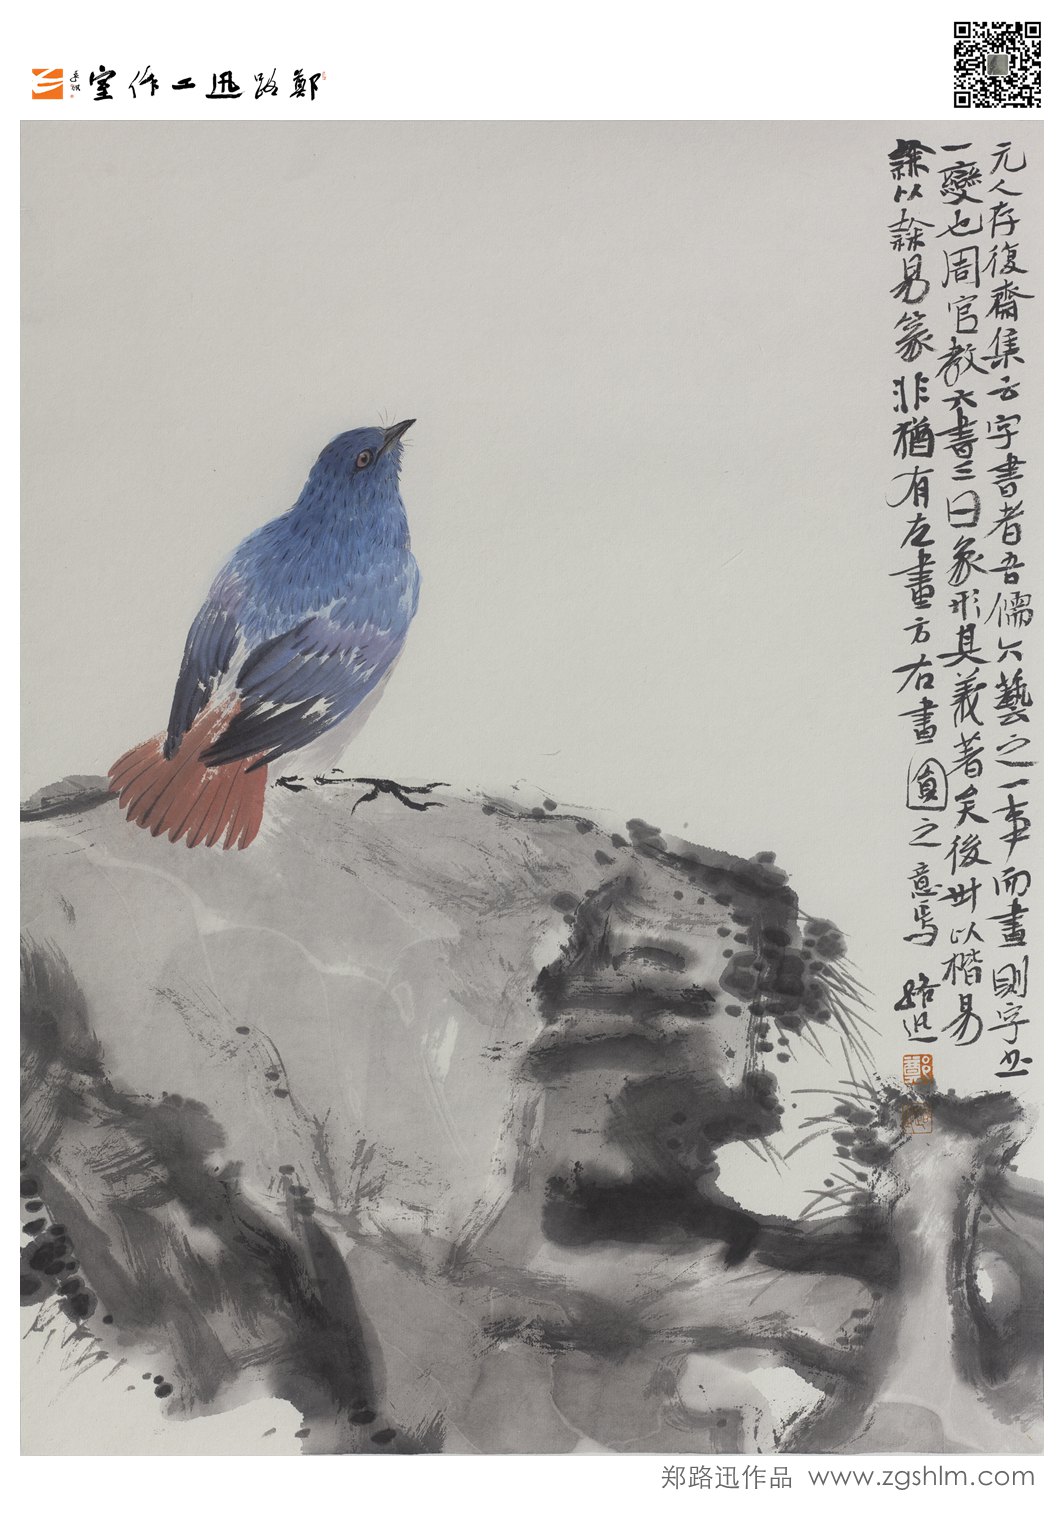 鄭路迅工作室
元人存復齋集云字書者吾儒六藝之一事而畫則字書
一變也周官教六書三曰象形其義著矣後世以楷易
隸以隸易篆非猶有左畫方右畫圓之意焉
路迅
鄭
郑路迅作品 www.zgshlm.com